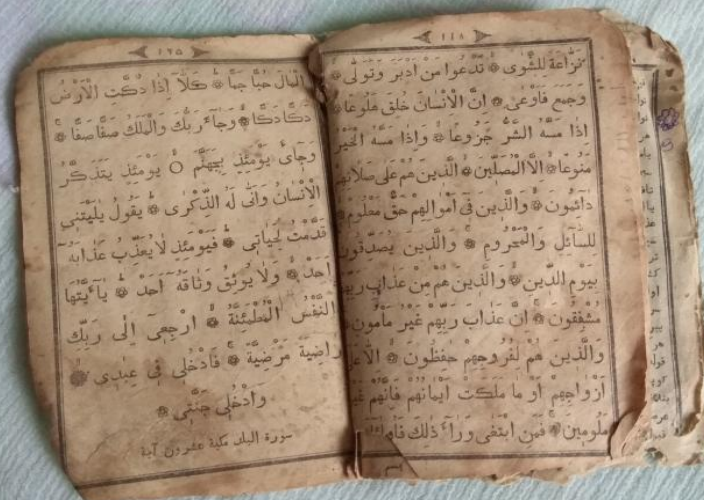 ١٤٨
نَزَّاعَةً لِلشَّوٰى ۞ تَدْعُوا مَنْ اَدْبَرَ وَتَوَلّٰى ۞
وَجَمَعَ فَاَوْعٰى ۞ اِنَّ الْاِنْسَانَ خُلِقَ هَلُوعًا ۞
اِذَا مَسَّهُ الشَّرُّ جَزُوعًا ۞ وَاِذَا مَسَّهُ الْخَيْرُ
مَنُوعًا ۞ اِلَّا الْمُصَلِّينَ ۞ الَّذِينَ هُمْ عَلٰى صَلَاتِهِمْ
دَائِمُونَ ۞ وَالَّذِينَ فِى اَمْوَالِهِمْ حَقٌّ مَعْلُومٌ ۞
لِلسَّآئِلِ وَالْمَحْرُومِ ۞ وَالَّذِينَ يُصَدِّقُونَ
بِيَوْمِ الدِّينِ ۞ وَالَّذِينَ هُمْ مِنْ عَذَابِ رَبِّهِمْ
مُشْفِقُونَ ۞ اِنَّ عَذَابَ رَبِّهِمْ غَيْرُ مَأْمُونٍ ۞
وَالَّذِينَ هُمْ لِفُرُوجِهِمْ حٰفِظُونَ ۞ اِلَّا عَلٰى
اَزْوَاجِهِمْ اَوْ مَا مَلَكَتْ اَيْمَانُهُمْ فَاِنَّهُمْ غَيْرُ
مَلُومِينَ ۞ فَمَنِ ابْتَغٰى وَرَآءَ ذٰلِكَ فَاُولٰٓئِكَ
١٦٥
الْمَالَ حُبًّا جَمًّا ۞ كَلَّآ اِذَا دُكَّتِ الْاَرْضُ
دَكًّا دَكًّا ۞ وَجَآءَ رَبُّكَ وَالْمَلَكُ صَفًّا صَفًّا ۞
وَجِآىءَ يَوْمَئِذٍ بِجَهَنَّمَ ۝ يَوْمَئِذٍ يَتَذَكَّرُ
الْاِنْسَانُ وَاَنّٰى لَهُ الذِّكْرٰى ۞ يَقُولُ يٰلَيْتَنِى
قَدَّمْتُ لِحَيَاتِى ۞ فَيَوْمَئِذٍ لَا يُعَذِّبُ عَذَابَهُٓ
اَحَدٌ ۞ وَلَا يُوثِقُ وَثَاقَهُٓ اَحَدٌ ۞ يَآ اَيَّتُهَا
النَّفْسُ الْمُطْمَئِنَّةُ ۞ ارْجِعِٓى اِلٰى رَبِّكِ
رَاضِيَةً مَرْضِيَّةً ۞ فَادْخُلِى فِى عِبَادِى ۞
وَادْخُلِى جَنَّتِى ۞
سورة البلد مكية عشرون آية